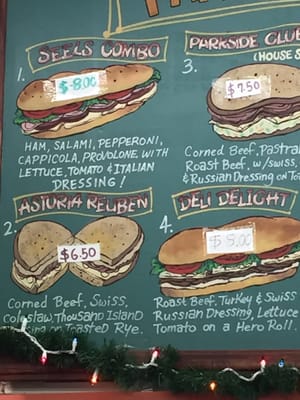 SEELS COMBO
1.
$8.00
HAM, SALAMI, PEPPERONI,
CAPPICOLA, PROVOLONE WITH
LETTUCE, TOMATO & ITALIAN
DRESSING!
PARKSIDE CLUB
(HOUSE S
3.
$7.50
Corned Beef, Pastra
Roast Beef, w/swiss,
& Russian Dressing on To
ASTORIA REUBEN
2.
$6.50
Corned Beef, Swiss,
Coleslaw, Thousand Island
on Toasted Rye.
DELI DELIGHT
4.
$8.00
Roast Beef, Turkey & Swiss
Russian Dressing, Lettuce
Tomato on a Hero Roll.